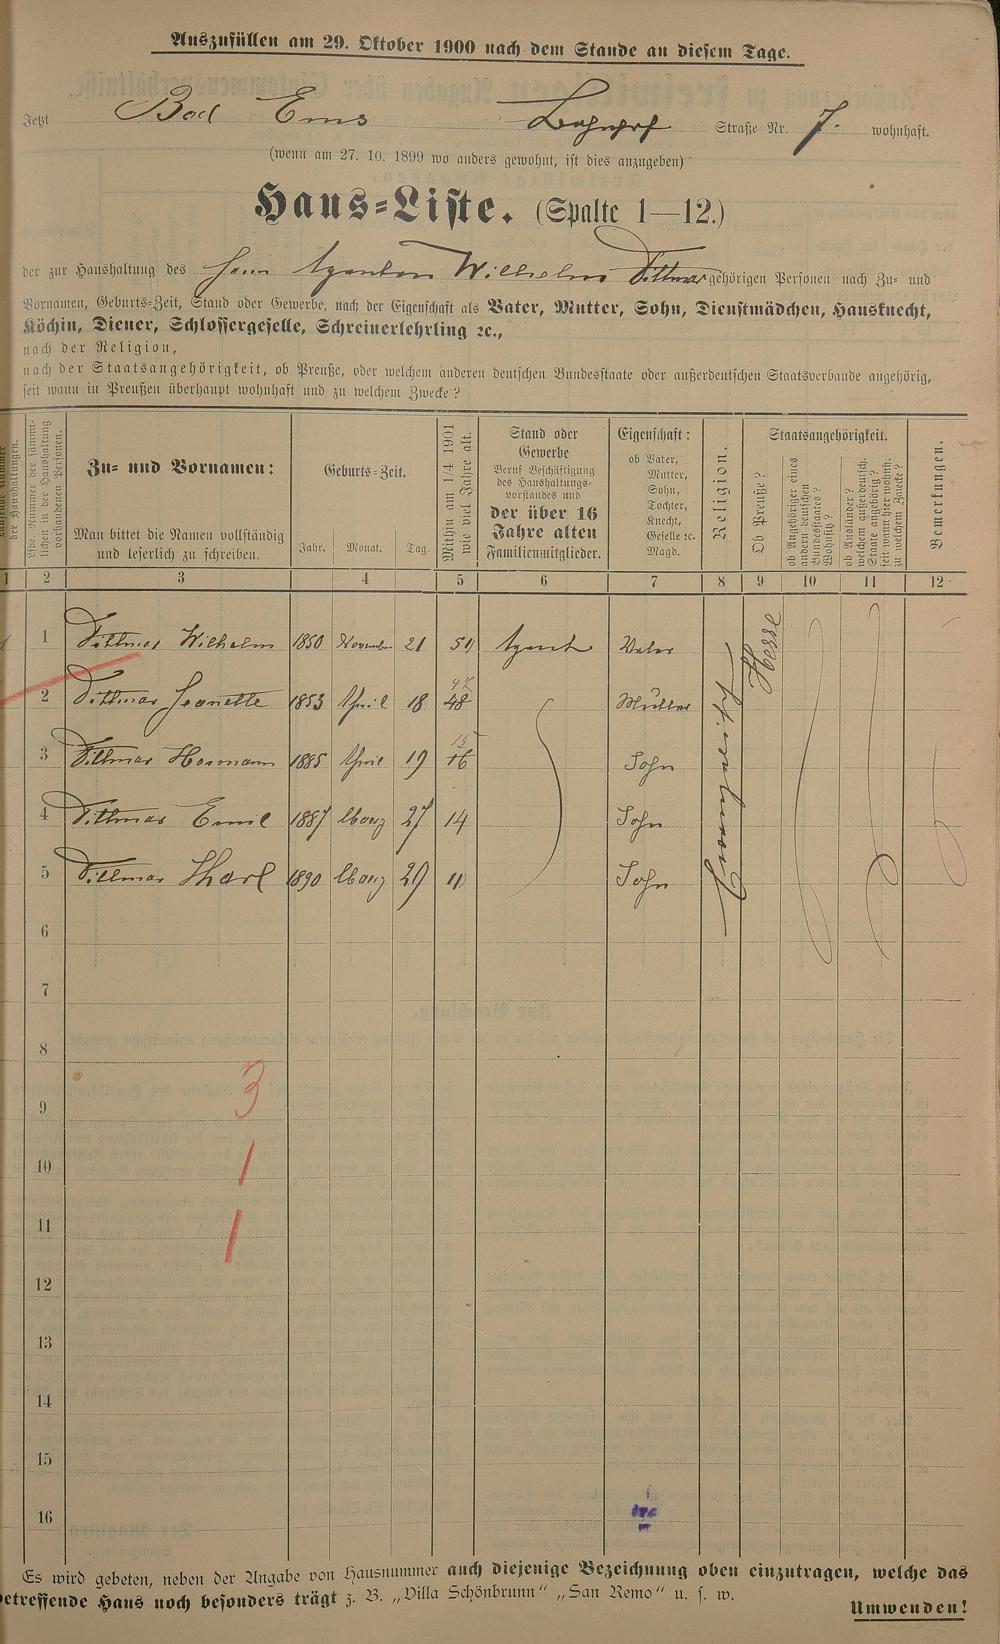 Auszufüllen am 29. Oktober 1900 nach dem Stande an diesem Tage.
Jetzt Bad Ems Bahnhof Straße Nr. 7. wohnhaft.
(wenn am 27. 10. 1899 wo anders gewohnt, ist dies anzugeben)
Haus-Liste. (Spalte 1—12.)
der zur Haushaltung des Herrn Agenten Wilhelm Dittmar gehörigen Personen nach Zu- und
Vornamen, Geburts-Zeit, Stand oder Gewerbe, nach der Eigenschaft als Vater, Mutter, Sohn, Dienstmädchen, Hausknecht,
Köchin, Diener, Schlossergeselle, Schreinerlehrling ꝛc.,
nach der Religion,
nach der Staatsangehörigkeit, ob Preuße, oder welchem anderen deutschen Bundesstaate oder außerdeutschen Staatsverbande angehörig,
seit wann in Preußen überhaupt wohnhaft und zu welchem Zwecke?
der Haushaltungen.
Lfde. Nummer der sämmt-
lichen in der Haushaltung
vorhandenen Personen.
Zu- und Vornamen:
Man bittet die Namen vollständig
und leserlich zu schreiben.
Geburts-Zeit.
Jahr. Monat. Tag.
Mithin am 1/4 1901
wie viel Jahre alt.
Stand oder
Gewerbe
Beruf Beschäftigung
des Haushaltungs-
vorstandes und
der über 16
Jahre alten
Familienmitglieder.
Eigenschaft:
ob Vater,
Mutter,
Sohn,
Tochter,
Knecht,
Geselle ꝛc.
Magd.
Religion.
Staatsangehörigkeit.
Ob Preuße?
ob Angehöriger eines
andern deutschen
Bundesstaates?
Wohnsitz?
ob Ausländer?
welchem außerdeutsch.
Staate angehörig?
seit wann hier wohnh.
zu welchem Zwecke?
Bemerkungen.
1 2 3 4 5 6 7 8 9 10 11 12
1 Dittmar Wilhelm 1850 November 21 50 Agent Vater
2 Dittmar Jeanette 1853 April 18 48 47 Mutter
3 Dittmar Hermann 1885 April 19 16 15 Sohn
4 Dittmar Emil 1887 März 27 14 Sohn
5 Dittmar Karl 1890 März 29 11 Sohn
Hesse
6
7
8
9
10
11
12
13
14
15
16
3
1
1
Es wird gebeten, neben der Angabe von Hausnummer auch diejenige Bezeichnung oben einzutragen, welche das
betreffende Haus noch besonders trägt z. B. „Villa Schönbrunn“ „San Remo“ u. s. w.
Umwenden!